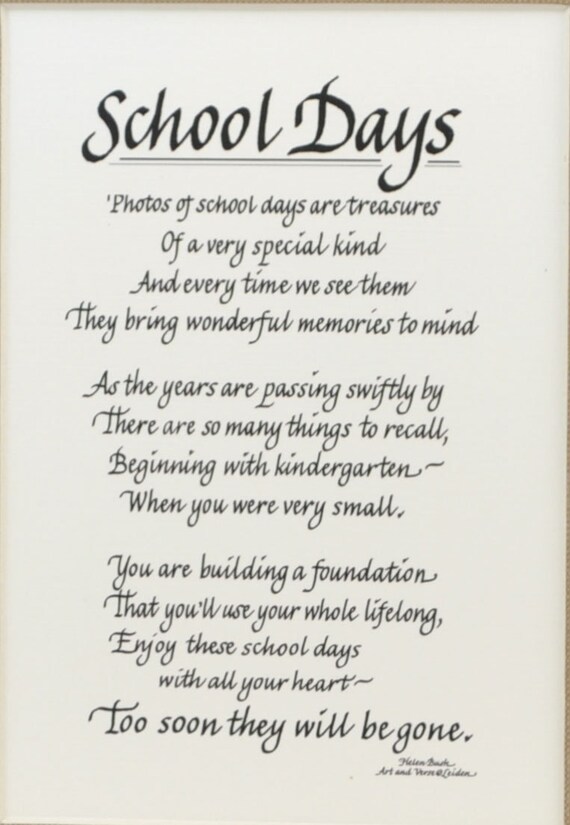 School Days
'Photos of school days are treasures
Of a very special kind
And every time we see them
They bring wonderful memories to mind
As the years are passing swiftly by
There are so many things to recall,
Beginning with kindergarten ~
When you were very small.
You are building a foundation
That you'll use your whole lifelong,
Enjoy these school days
with all your heart ~
Too soon they will be gone.
Helen Bush
Art and Verse © Leiden